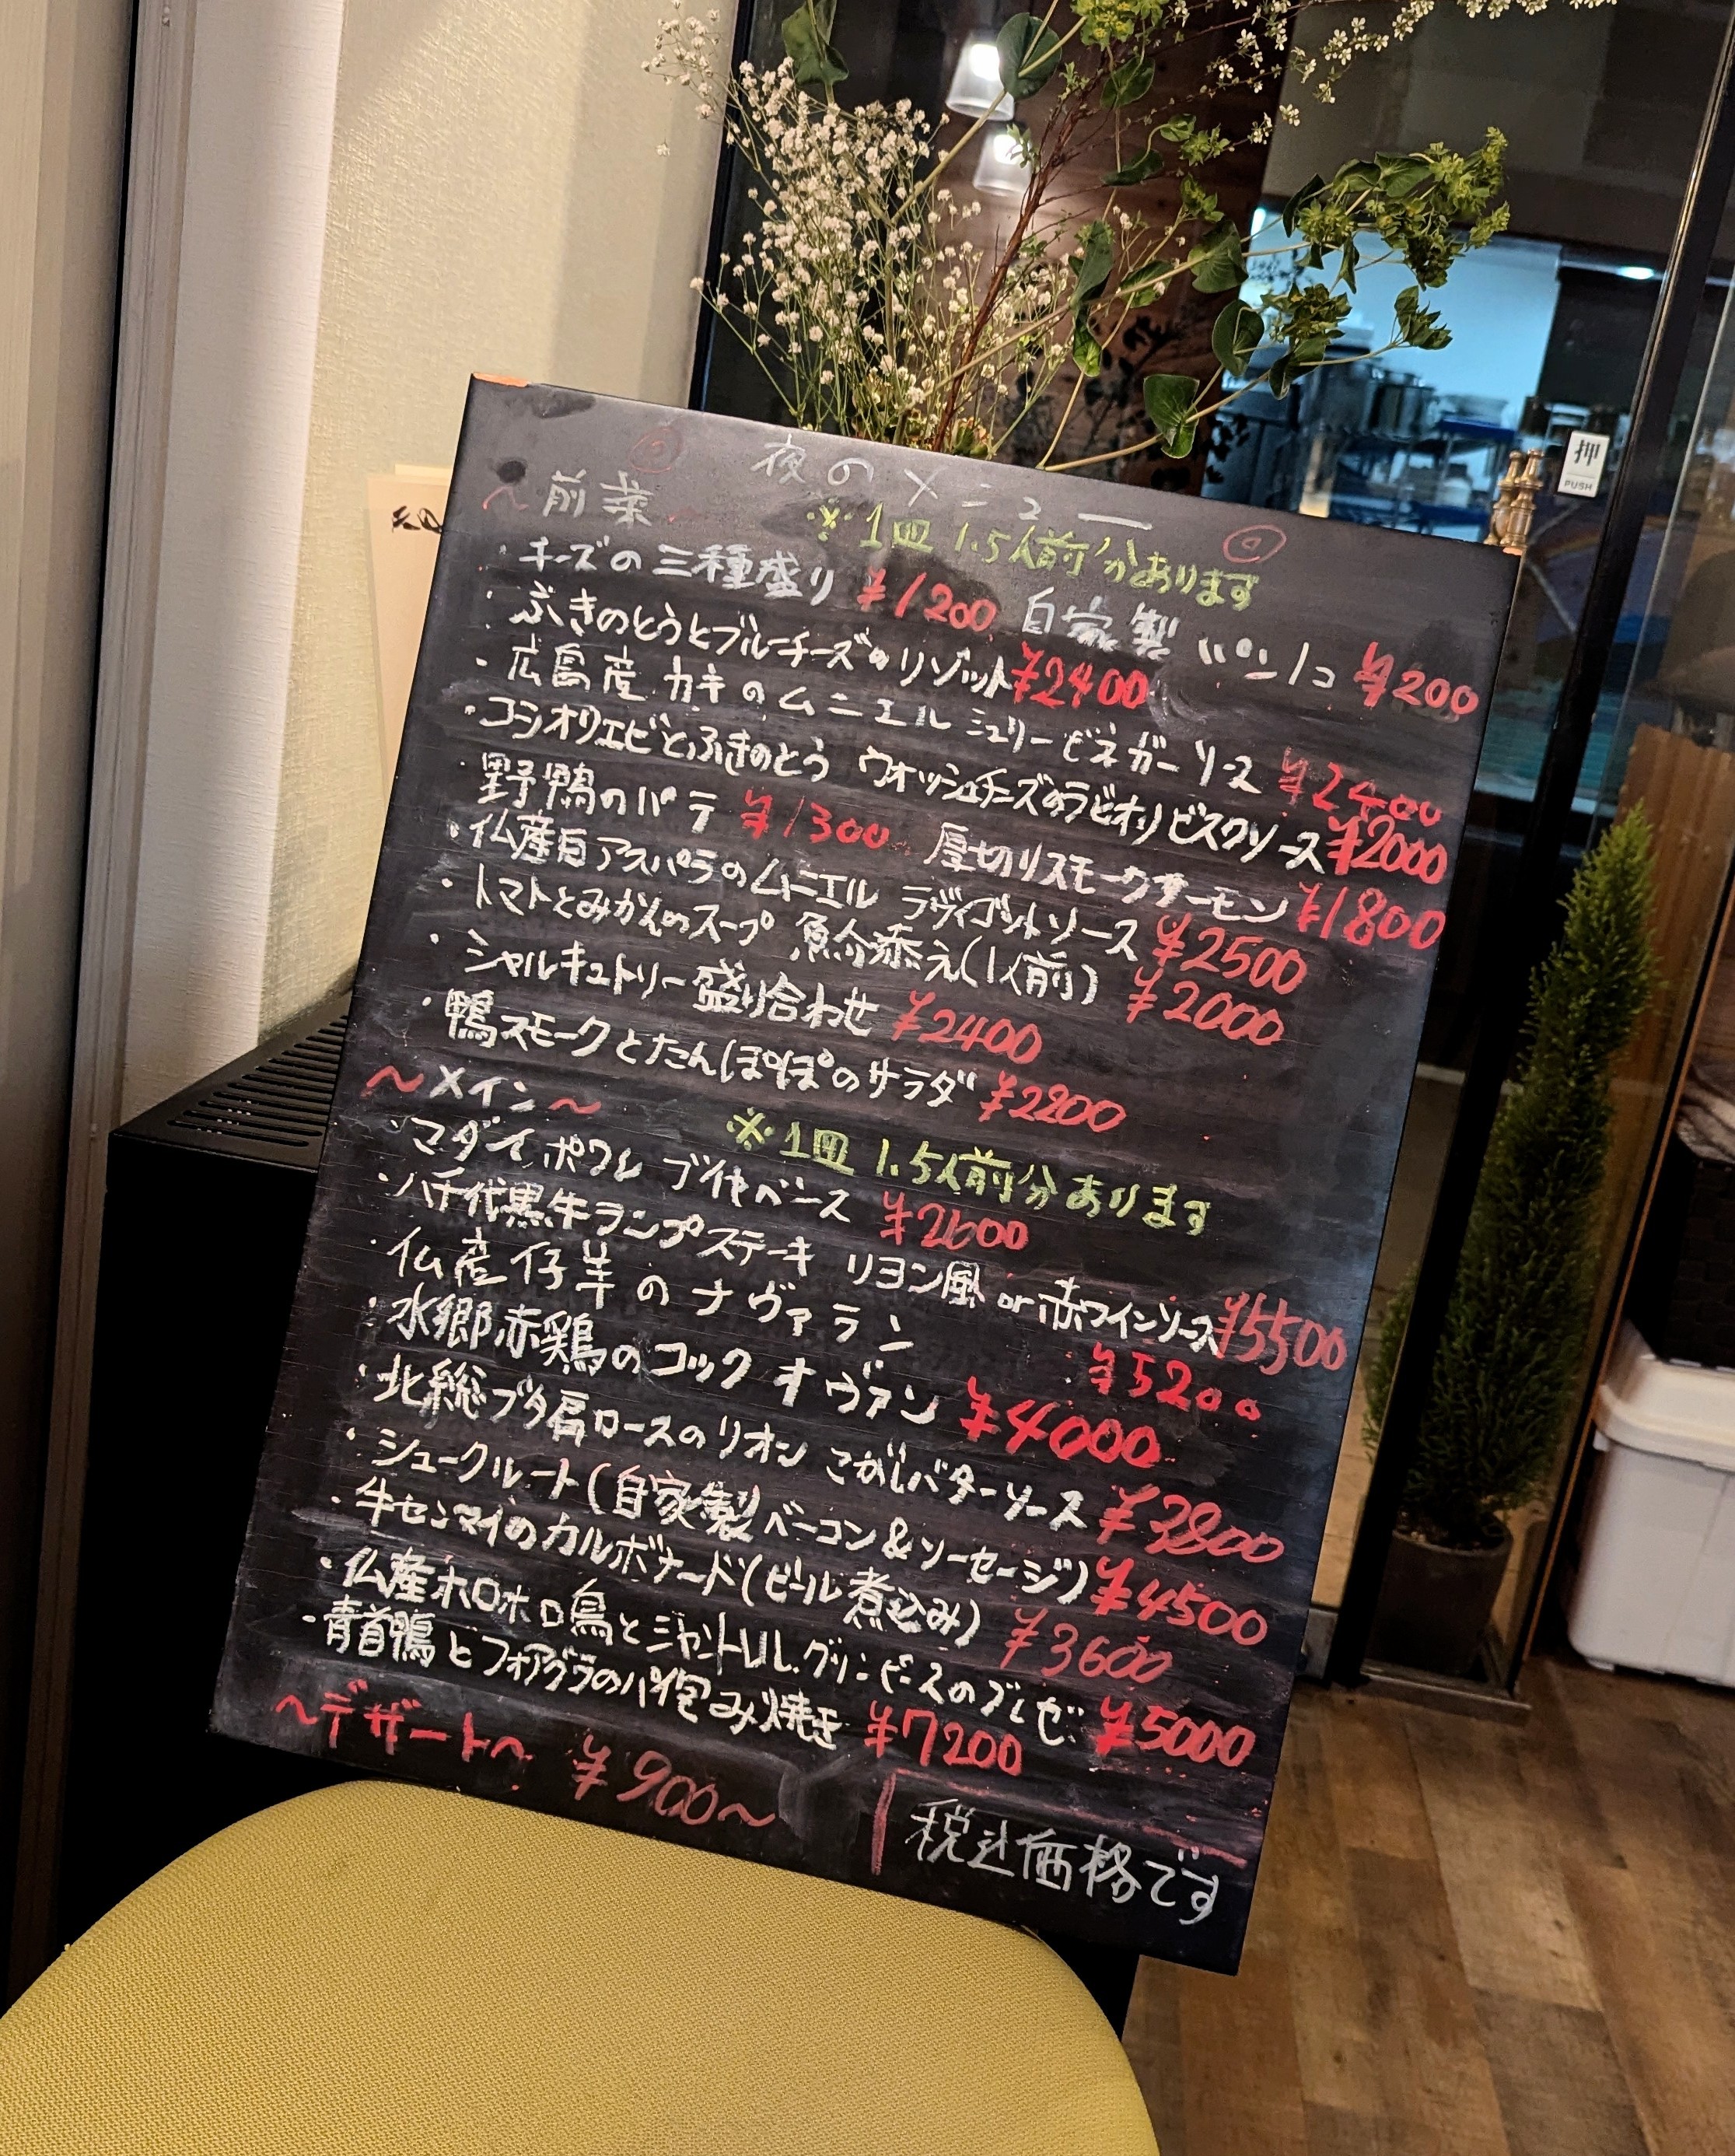 夜のメニュー
～前菜～
※1皿 1.5人前分あります
・チーズの三種盛り ¥1200 自家製パン1コ ¥200
・ふきのとうとブルーチーズのリゾット ¥2400
・広島産カキのムニエル シェリービネガーソース ¥2400
・コシオリエビとふきのとう ウオッシュチーズのラビオリ ビスクソース ¥2000
・野鴨のパテ ¥1300 厚切りスモークサーモン ¥1800
・仏産白アスパラのムニエル ラヴィゴットソース ¥2500
・トマトとみかんのスープ 魚介添え(1人前) ¥2000
・シャルキュトリー盛り合わせ ¥2400
・鴨スモークとたんぽぽのサラダ ¥2200
～メイン～
※1皿 1.5人前分あります
・マダイ ポワレ ブイヤベース ¥2600
・八千代黒牛ランプステーキ リヨン風 or 赤ワインソース ¥5500
・仏産仔羊のナヴァラン ¥5200
・水郷赤鶏のコックオヴァン ¥4000
・北総ブタ肩ロースのリオン こがしバターソース ¥3800
・シュークルート(自家製ベーコン&ソーセージ) ¥4500
・牛センマイのカルボナード(ビール煮込み) ¥3600
・仏産ホロホロ鳥とジャントルル.グリンピースのブレゼ ¥5000
・青首鴨とフォアグラのパイ包み焼き ¥7200
～デザート～ ¥900～
税込価格です
押
PUSH